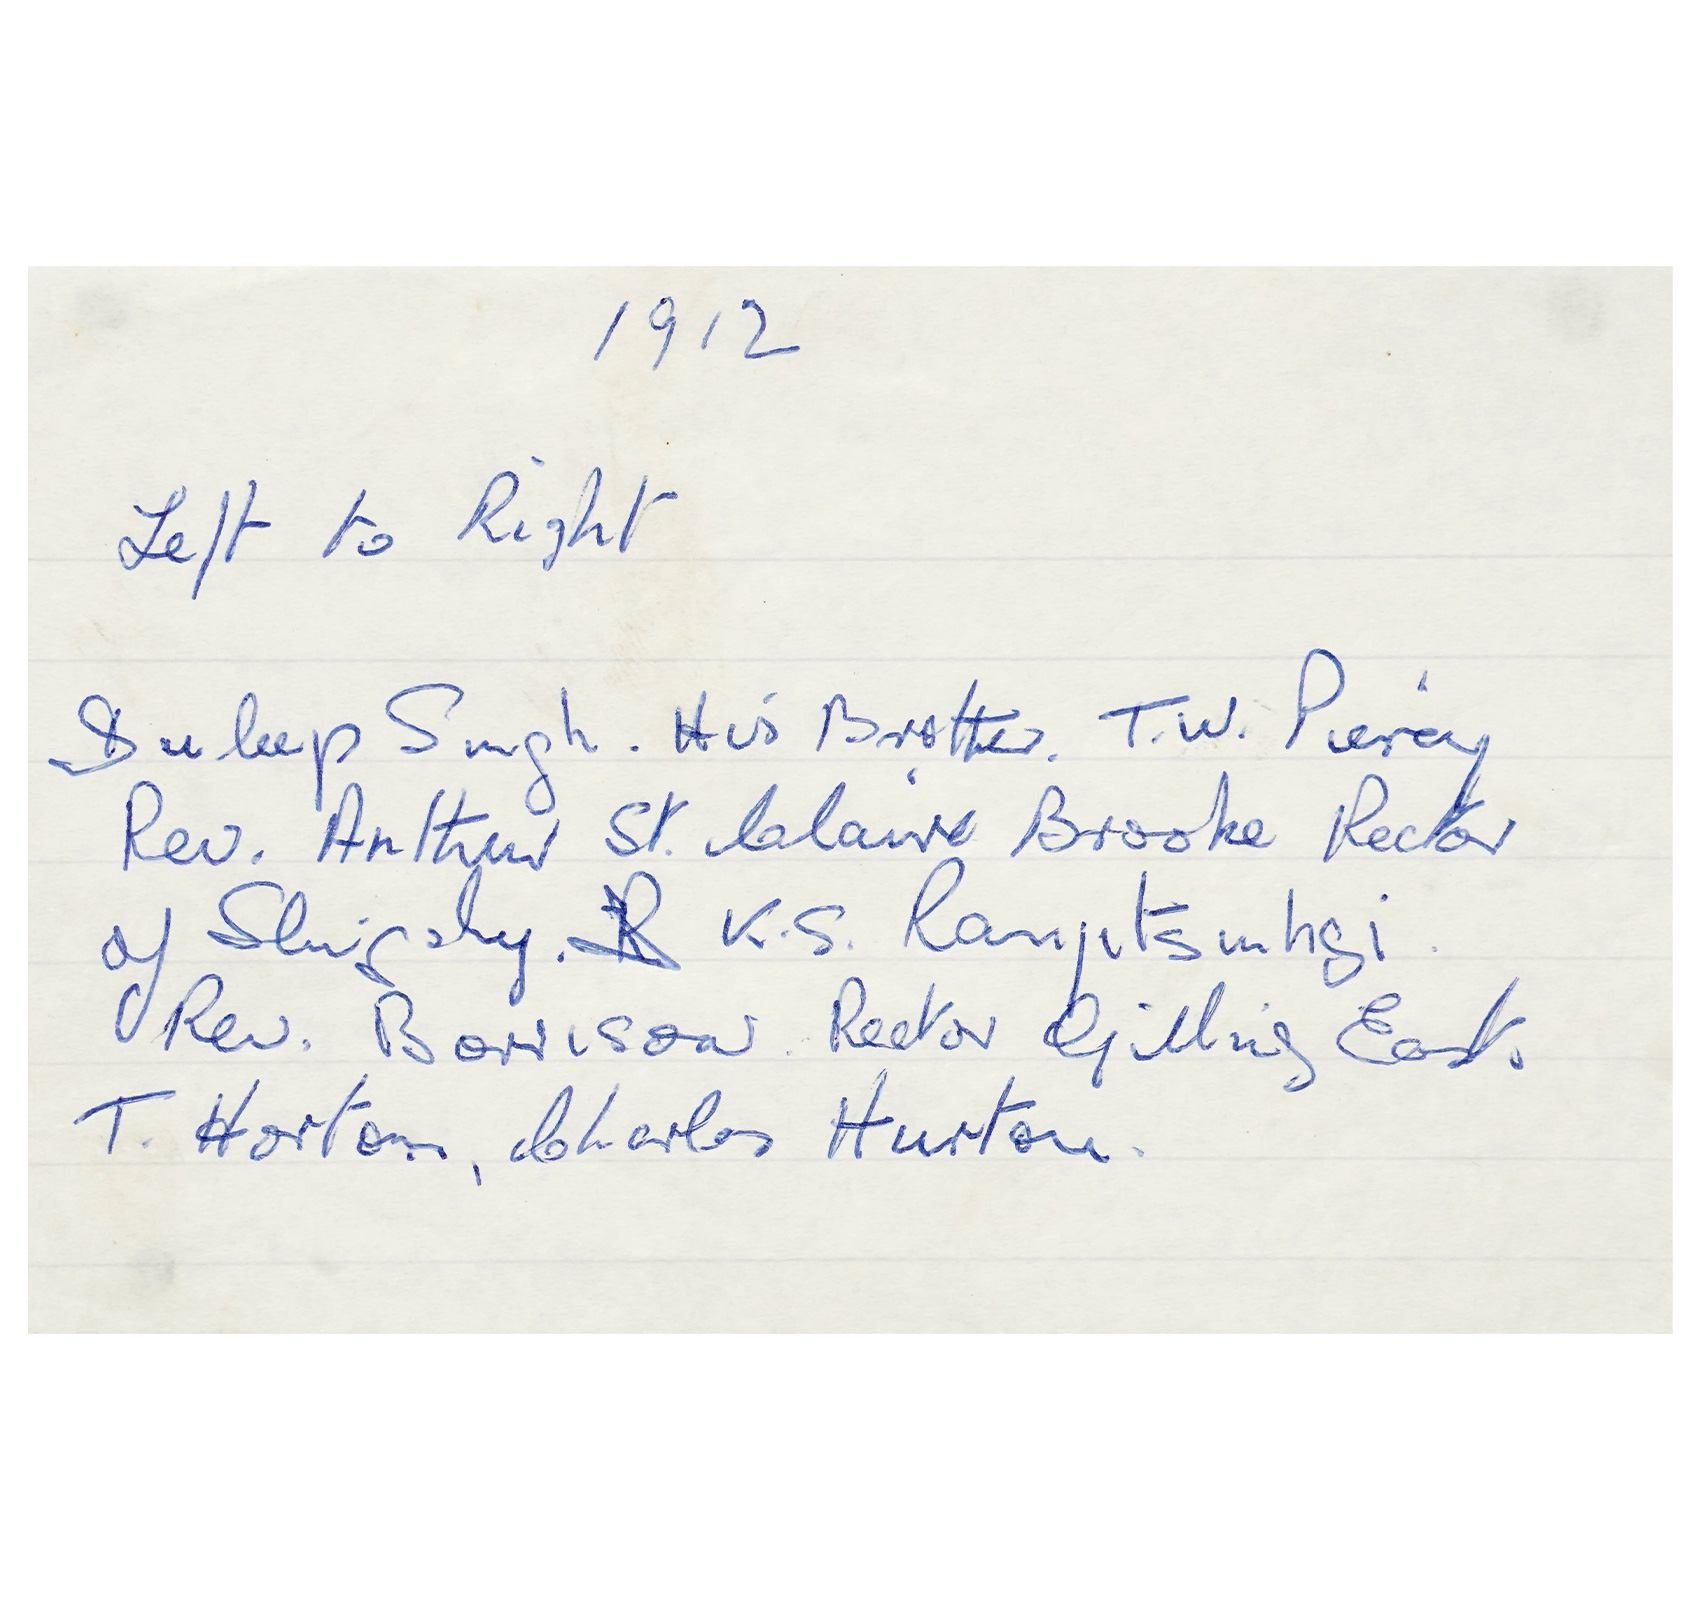 1912
Left to Right
Duleep Singh. His Brother. T.W. Pierèy
Rev. Arthur St. Claire Brooke Rector
of Slingsby. K.S. Ranjitsinhgi.
Rev. Borrison. Rector Gilling East.
T. Horton, Charles Hurton.